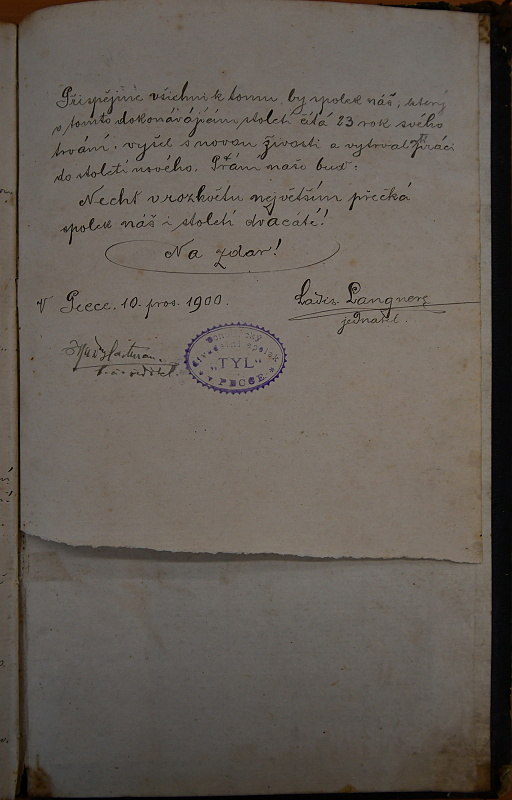 Přispějme všichni k tomu, by spolek náš, který
v tomto dokonávajícím století čítá 23 rok svého
trvání, vyšel s novou živostí a vytrval při práci
do století nového. Přání naše buď:
Nechť v rozkvětu největším přečká
spolek náš i století dvacáté!
Na zdar!
V Pecce, 10. pros. 1900.
Ladis. Langner
jednatel.
t. č. ředitel
divadelní spolek
„TYL“
v PECCE